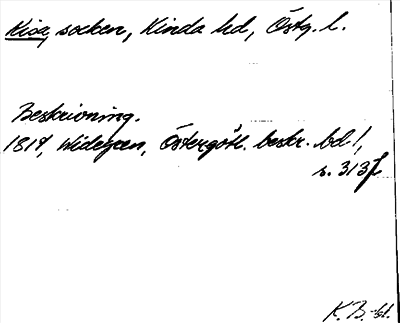 Kisa, socken, Kinda hd, Östg. l.
Beskrivning.
1817, Widegren, Östergötl. beskr. bd 1,
s. 313f
K. B.-bl.